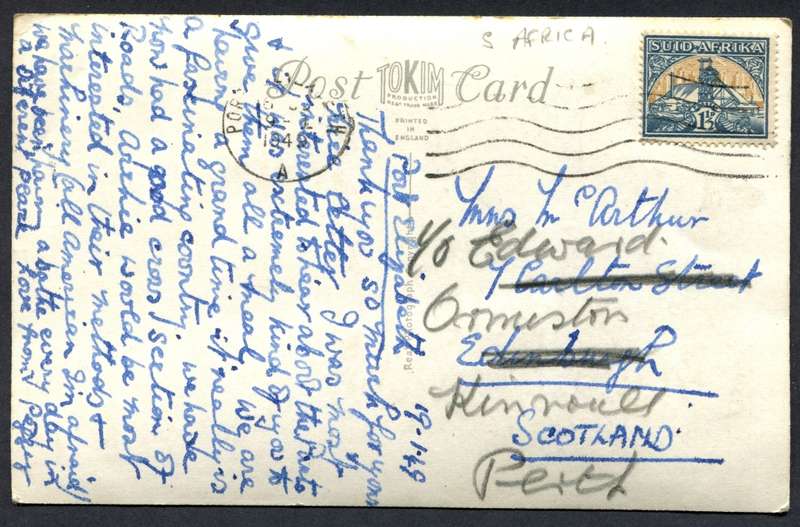 S AFRICA
Post TOKIM Card
PRODUCTION
PRINTED
IN
ENGLAND
SUID-AFRIKA
1½D
1949
A
Port Elizabeth 19-1-49
Thank you so much for your
nice letter I was most
interested to hear about the
& it is extremely kind of you to
give them all a meal. We are
having a grand time it really is
a fascinating country. We have
now had a good cross section of
Roads, Archie would be most
interested in their methods &
machinery (all American I'm afraid)
we have been having a bathe every day in
a different place. Love from Peggy
Mrs McArthur
c/o Edward.
7 Carlton Street
Ormiston
Edinburgh
Kinnoull
SCOTLAND
Perth
Real Photograph